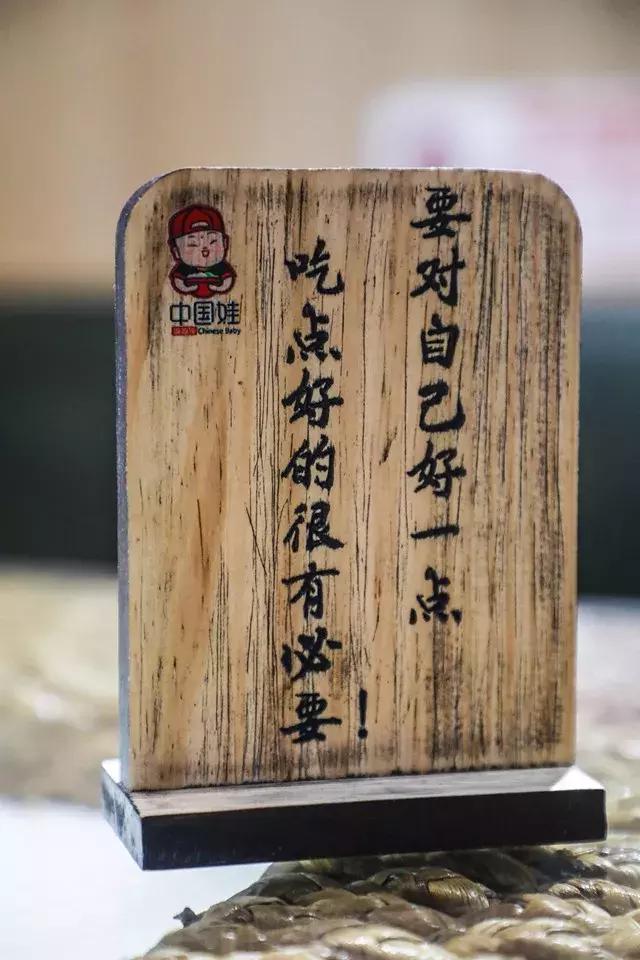 要对自己好一点
吃点好的很有必要！
中国娃
Chinese Baby